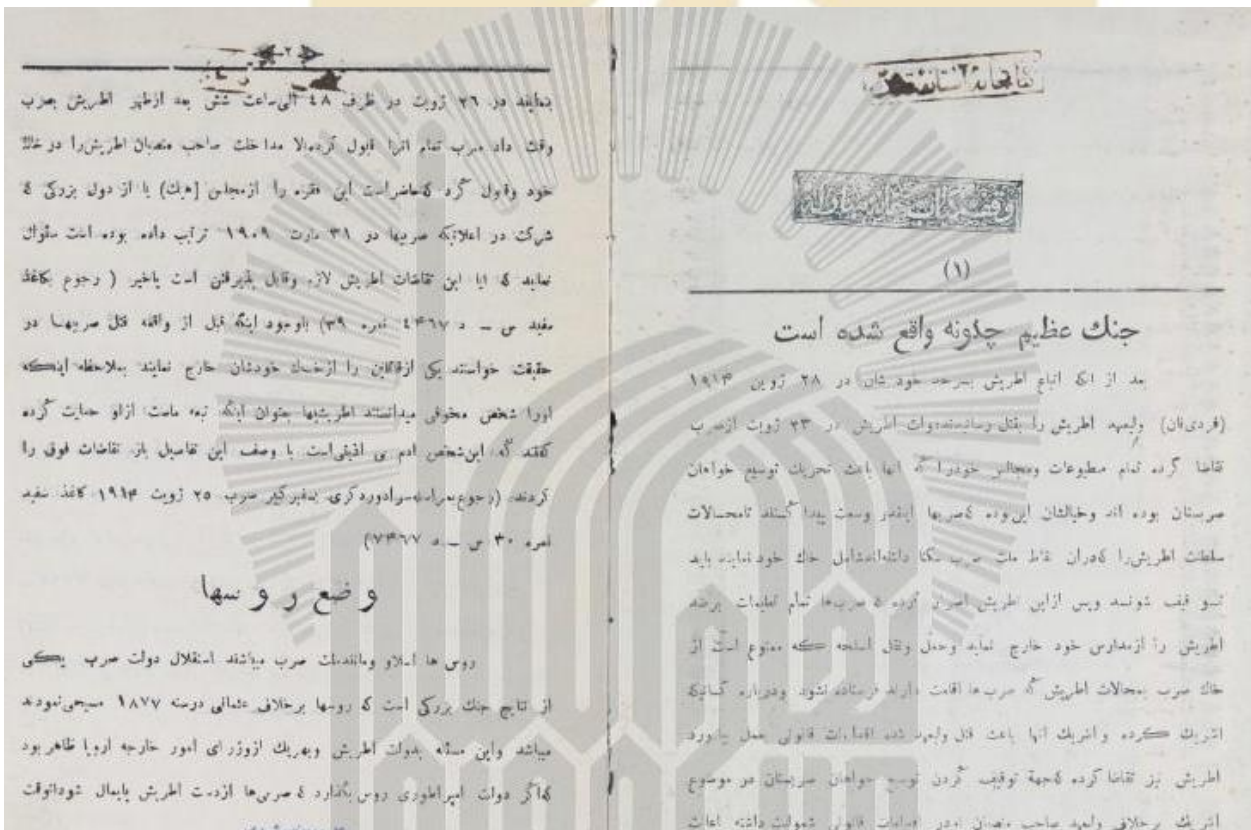 (۱)
جنك عظيم چگونه واقع شده است
بعد از انکه اتباع اطریش بسرحد خودشان در ۲۸ ژوین ۱۹۱۴
(فردی‌نان) ولیعهد اطریش را بقتل رسانیدند دولت اطریش در ۲۳ ژویت ازصرب
تقاضا کرده تمام مطبوعات ومجالس خودرا که انها باعث تحریك توسیع خواهان
صربستان بوده اند وخیالشان این‌بوده که صربها اینقدر وسعت پیدا کنند تامحالات
سلطنت اطریش‌را که‌دران نقاط ملت صرب سکنا داشته‌اند شامل خاك خود نمایند باید
توقیف شوند وپس ازاین اطریش اصرار کرده که صرب‌ها تمام تعلیمات برضد
اطریش را ازمدارس خود خارج نماید وحمل ونقل اسلحه که ممنوع است از
خاك صرب بمحالات اطریش که صرب‌ها اقامت دارند فرستاده نشود ودرباره کسانیکه
انتریك کرده و انتریك انها باعث قتل ولیعهد شده اقدامات قانونی بعمل بیاورد
اطریش نیز تقاضا کرده که‌جهة توقیف کردن توسیع خواهان صربستان در موضوع
انتریك برخلاف ولیعهد صاحب منصبان او در اقدامات قانونی شمولیت داشته اعانت
۲
بنمایند در ۲۶ ژویت در ظرف ۴۸ الی‌ساعت شش بعد ازظهر اطریش بصرب
وقت داد صرب تمام انرا قبول کرد الا مداخلت صاحب منصبان اطریش‌را در خاك
خود وقبول کرد که‌حاضراست این فقره را ازمجلس [هیك) یا از دول بزرگی که
شرکت در اعلانیکه صربیها در ۳۱ مارت ۱۹۰۹ ترتیب داده بوده است سئوال
نماید که ایا این تقاضات اطریش لازم وقابل پذیرفتن است یاخیر ( رجوع بکاغذ
سفید س ــ د ۷۴۶۷ نمره ۳۹) باوجود اینکه قبل از واقعه قتل صربیها در
حقیقت خواستند یکی ازقاتلین را ازخاك خودشان خارج نمایند بملاحظه اینکه
اورا شخص مخوفی میدانستند اطریشیها بعنوان اینکه تبعه ماست ازاو حمایت کرده
گفتند که این‌شخص ادم بی اذیتی‌است با وصف این تفاصیل باز تقاضات فوق را
کردند (رجوع بمراسله‌سرادوردکری بسفیرکبیر صرب ۲۵ ژویت ۱۹۱۴ کاغذ سفید
نمره ۳۰ س ــ د ۷۴۶۷)
وضع روسها
روس ها اسلاو ومانندملت صرب میباشند استقلال دولت صرب یکی
از نتایج جنك بزرگی است که روسها برخلاف عثمانی درسنه ۱۸۷۷ مسیحی‌نمودند
میباشد واین مسئله بدولت اطریش وبهریك ازوزرای امور خارجه اروپا ظاهر بود
که‌اگر دولت امپراطوری روس بگذارد که صربی‌ها ازدست اطریش پایمال شود انوقت